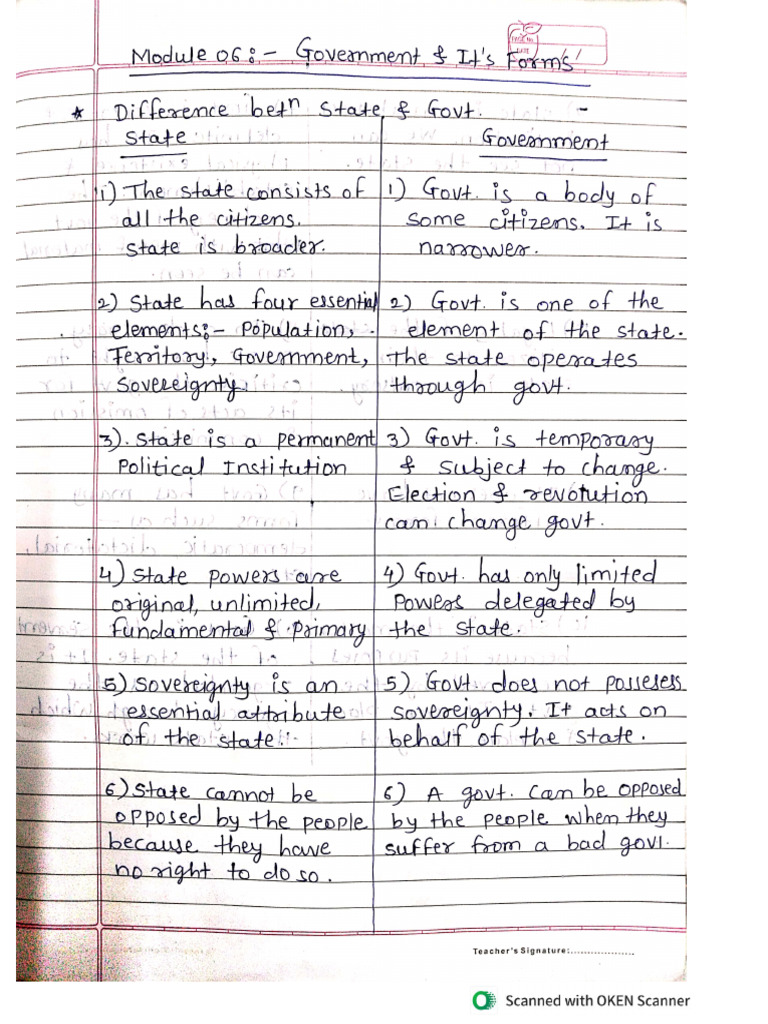 Module 06:- Government & It's Forms
* Difference betn State & Govt. -
State
1) The state consists of
all the citizens.
State is broader.
2) State has four essential
elements:- Population,
Territory, Government,
Sovereignty.
3). State is a permanent
Political Institution
4) State powers are
original, unlimited,
Fundamental & Primary
5) Sovereignty is an
essential attribute
of the state.
6) State cannot be
opposed by the people
because they have
no right to do so.
Government
1) Govt. is a body of
some citizens. It is
narrower.
2) Govt. is one of the
element of the state.
The state operates
through govt.
3) Govt. is temporary
& subject to change.
Election & revotution
can change govt.
4) Govt. has only limited
Powers delegated by
the state.
5) Govt. does not possesess
sovereignty. It acts on
behalf of the state.
6) A govt. can be opposed
by the people when they
suffer from a bad govt.
Teacher's Signature:...................
Scanned with OKEN Scanner